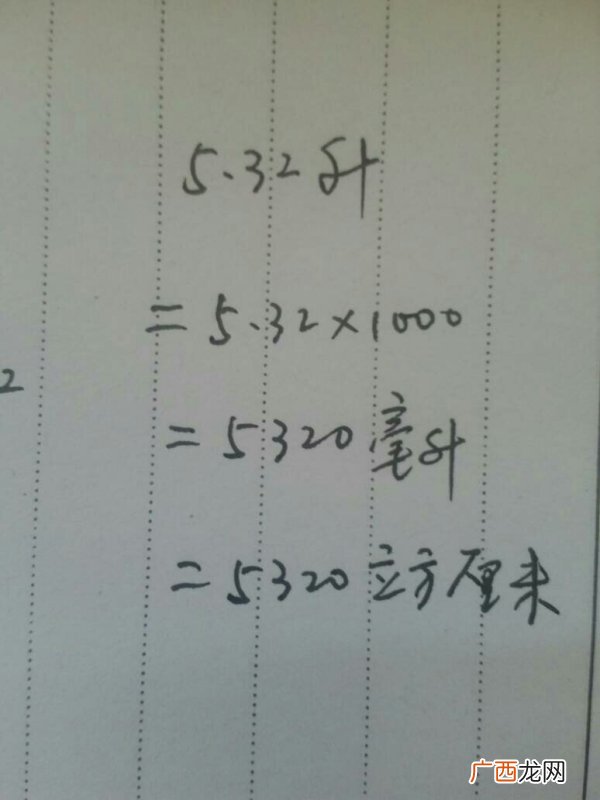 5.32升
=5.32×1000
2
=5320毫升
=5320立方厘米
广西龙网